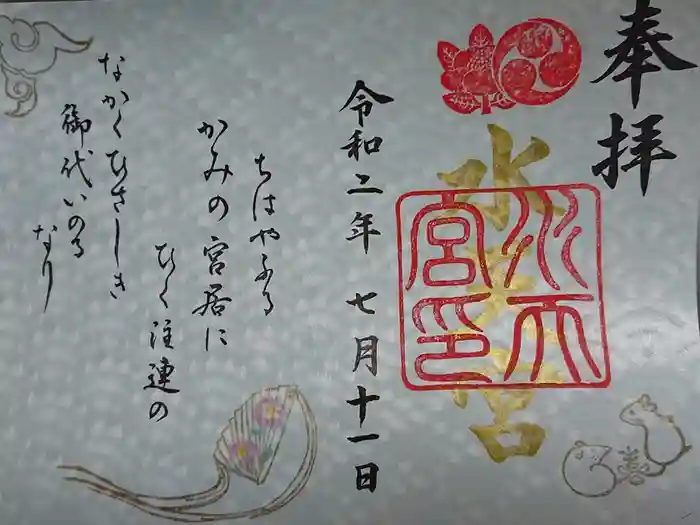 奉拝
水天宮
水天宮印
令和二年 七月十一日
ちはやふる
かみの宮居に
ひく注連の
なかくひさしき
御代いのる
なり